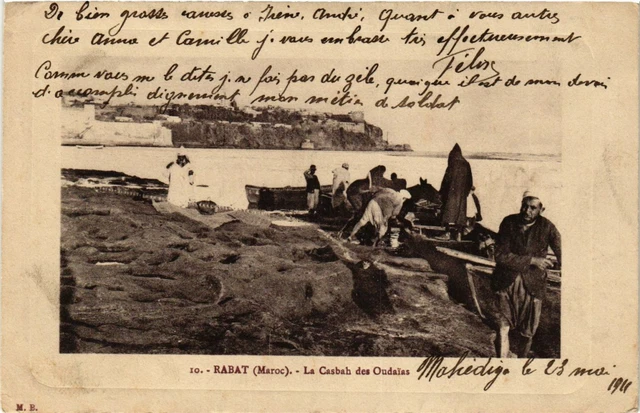 De bien grosses caresses à Irène, André, Quant à vous autres
chère Anna et Camille je vous embrasse très affectueusement
Félix
Comme vous me le dites je ne fais pas du zèle, quoique il est de mon devoir
d'accompli dignement mon métier de soldat
10. - RABAT (Maroc). - La Casbah des Oudaïas
Mahédiya le 23 mai
1911
M. E.